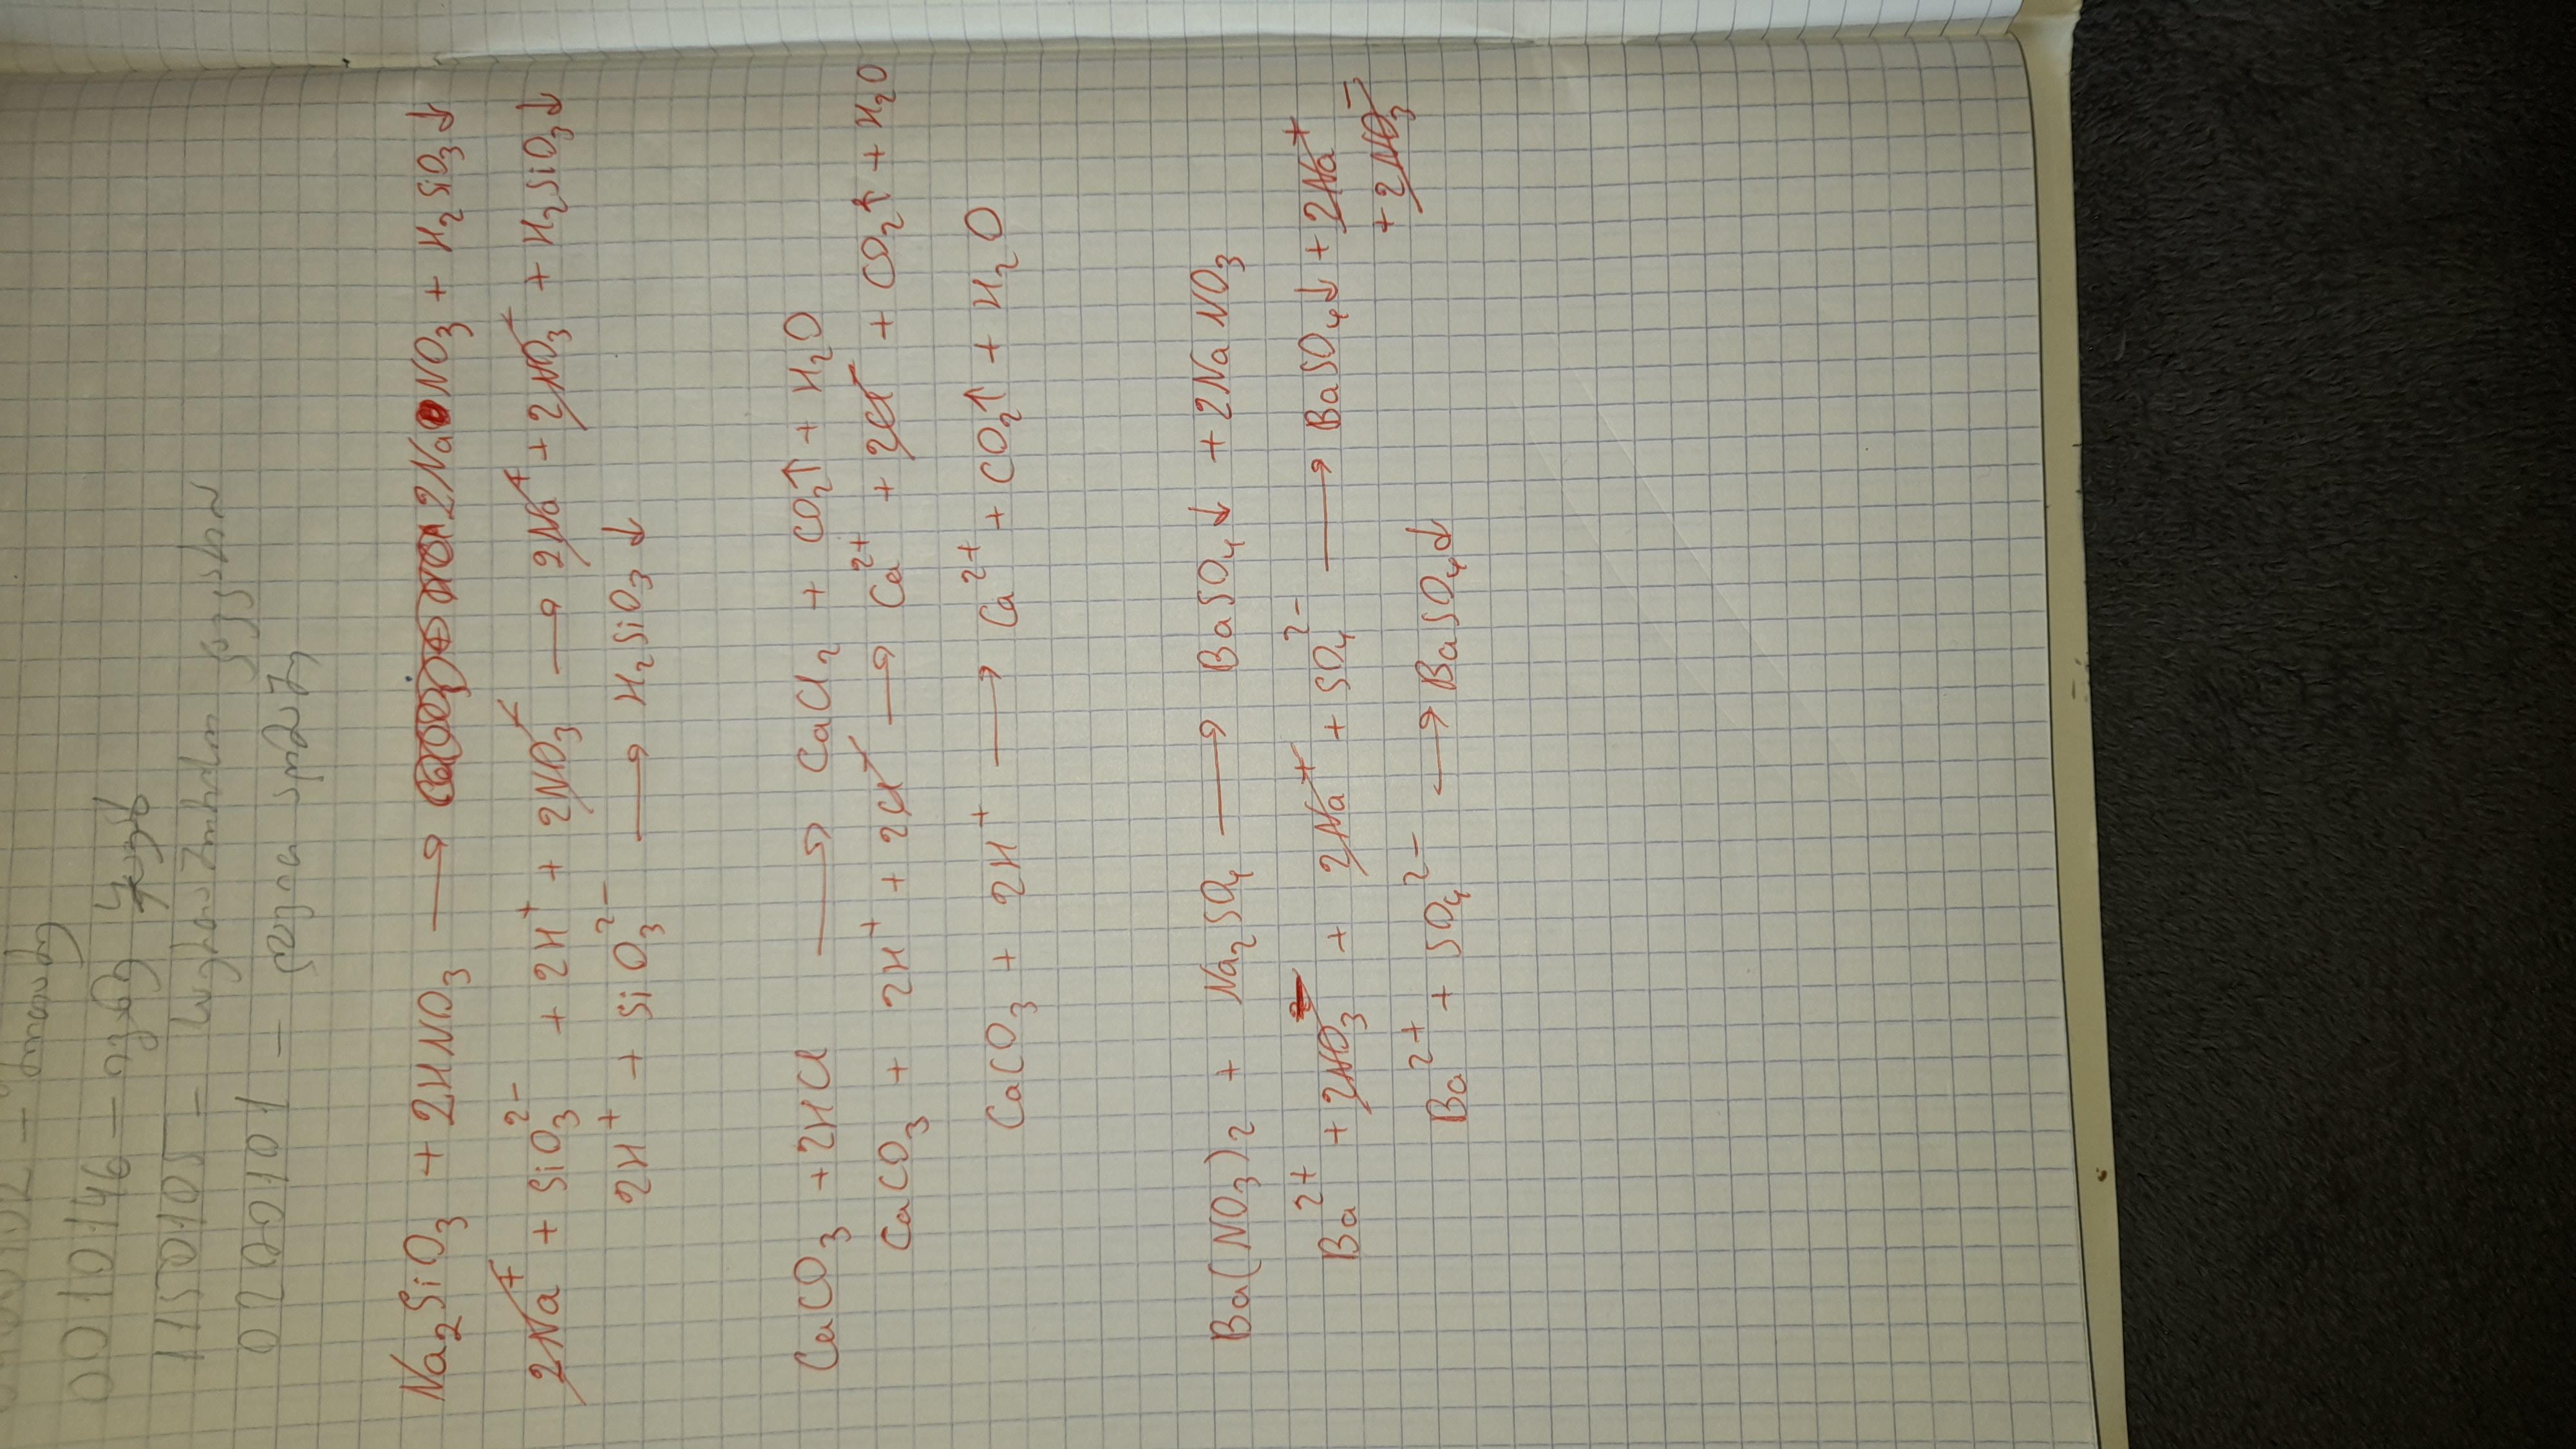 0010146 –
11150105 –
0200101 –
Na₂SiO₃ + 2HNO₃ ⟶ 2NaNO₃ + H₂SiO₃↓
2Na⁺ + SiO₃²⁻ + 2H⁺ + 2NO₃⁻ ⟶ 2Na⁺ + 2NO₃⁻ + H₂SiO₃↓
2H⁺ + SiO₃²⁻ ⟶ H₂SiO₃↓
CaCO₃ + 2HCl ⟶ CaCl₂ + CO₂↑ + H₂O
CaCO₃ + 2H⁺ + 2Cl⁻ ⟶ Ca²⁺ + 2Cl⁻ + CO₂↑ + H₂O
CaCO₃ + 2H⁺ ⟶ Ca²⁺ + CO₂↑ + H₂O
Ba(NO₃)₂ + Na₂SO₄ ⟶ BaSO₄↓ + 2NaNO₃
Ba²⁺ + 2NO₃⁻ + 2Na⁺ + SO₄²⁻ ⟶ BaSO₄↓ + 2Na⁺
+ 2NO₃⁻
Ba²⁺ + SO₄²⁻ ⟶ BaSO₄↓